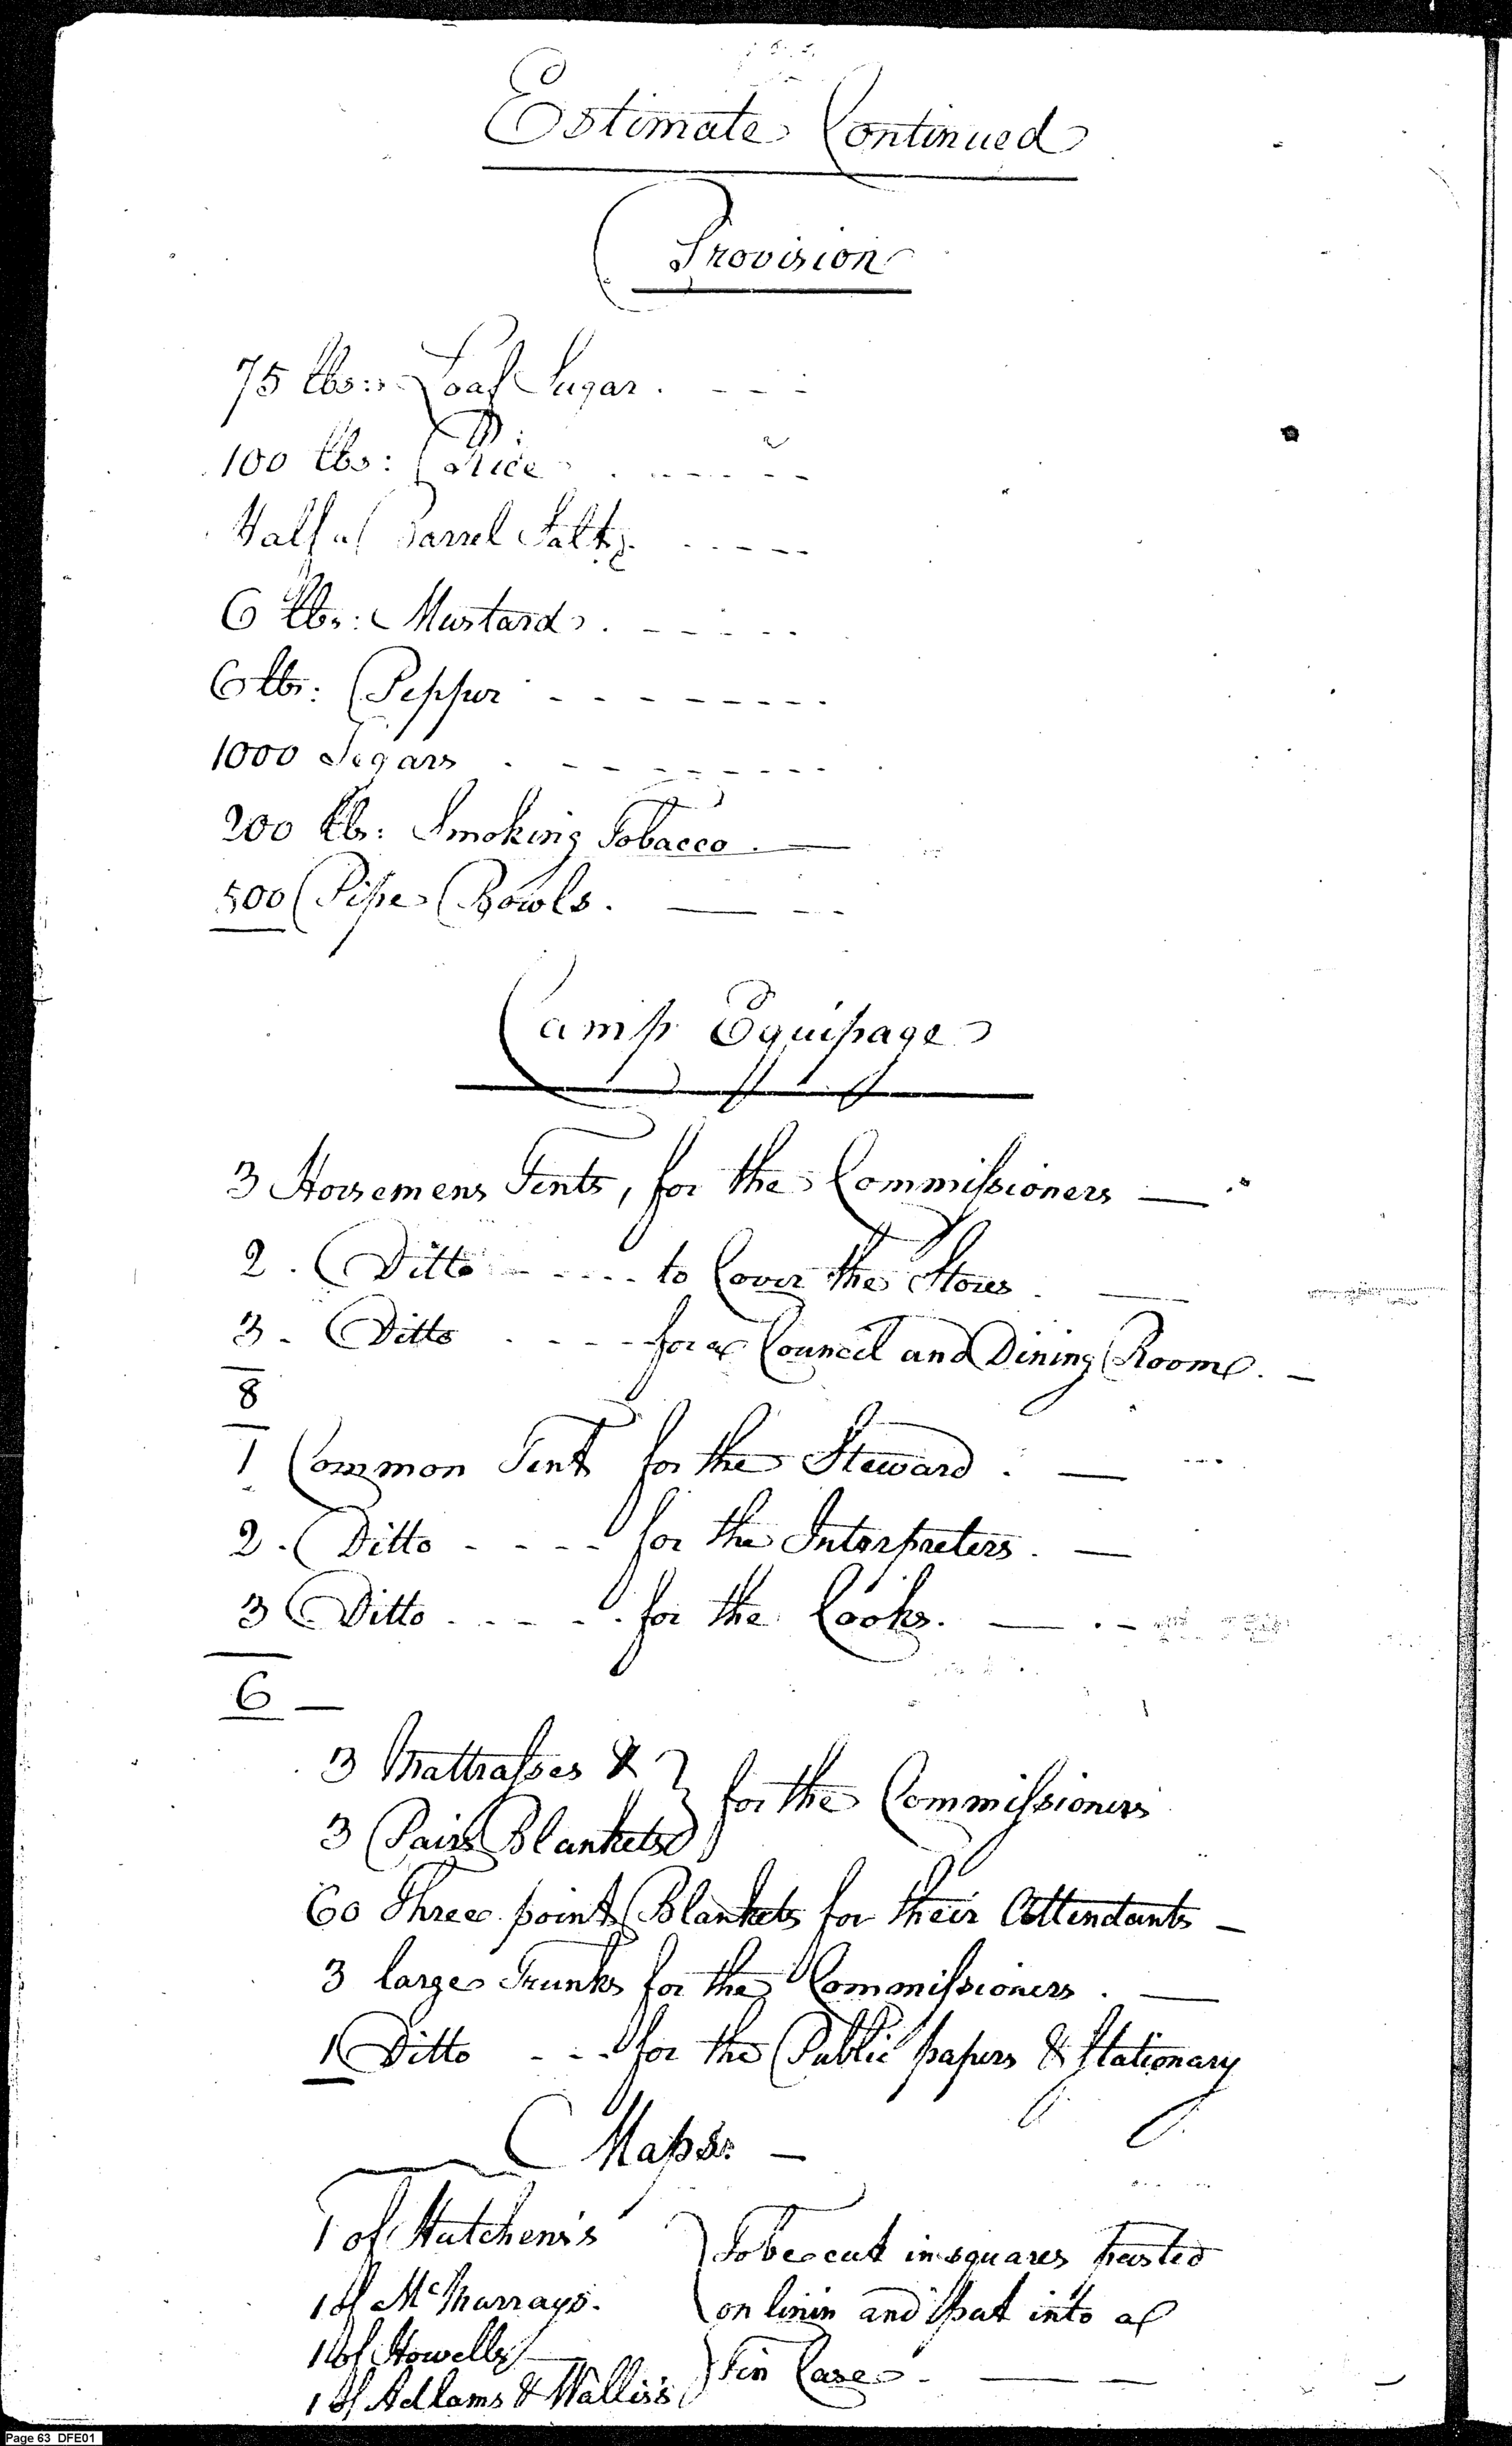 Estimate Continued
Provision
75 lbs: Loaf Sugar. - - -
100 lbs: Rice . - - - - -
Half a Barrel Salt. - - - -
6 lbs: Mustard. - - - - -
6 lbs: Pepper - - - - - - -
1000 Segars . - - - - - - -
200 lbs: Smoking Tobacco. —
500 Pipe Bowls. — - -
Camp Equipage
3 Horsemens Tents, for the Commissioners —
2. Ditto - - - - to Cover the Stores. —
3. Ditto - - - - for a Council and Dining Room. —
8
1 Common Tent for the Steward. —
2. Ditto - - - - for the Interpreters. —
3 Ditto - - - - for the Cooks. — . -
6 —
3 Mattrasses &
3 Pairs Blankets } for the Commissioners
60 Three point Blankets for their Attendants —
3 large Trunks for the Commissioners. —
1 Ditto - - - for the Public papers & Stationary
Maps. —
1 of Hutchens's } To be cut in squares pasted
1 of McMurrays. on linin and put into a
1 of Howells —
1 of Adlams & Wallis's } Tin Case. — —
Page 63 DFE01